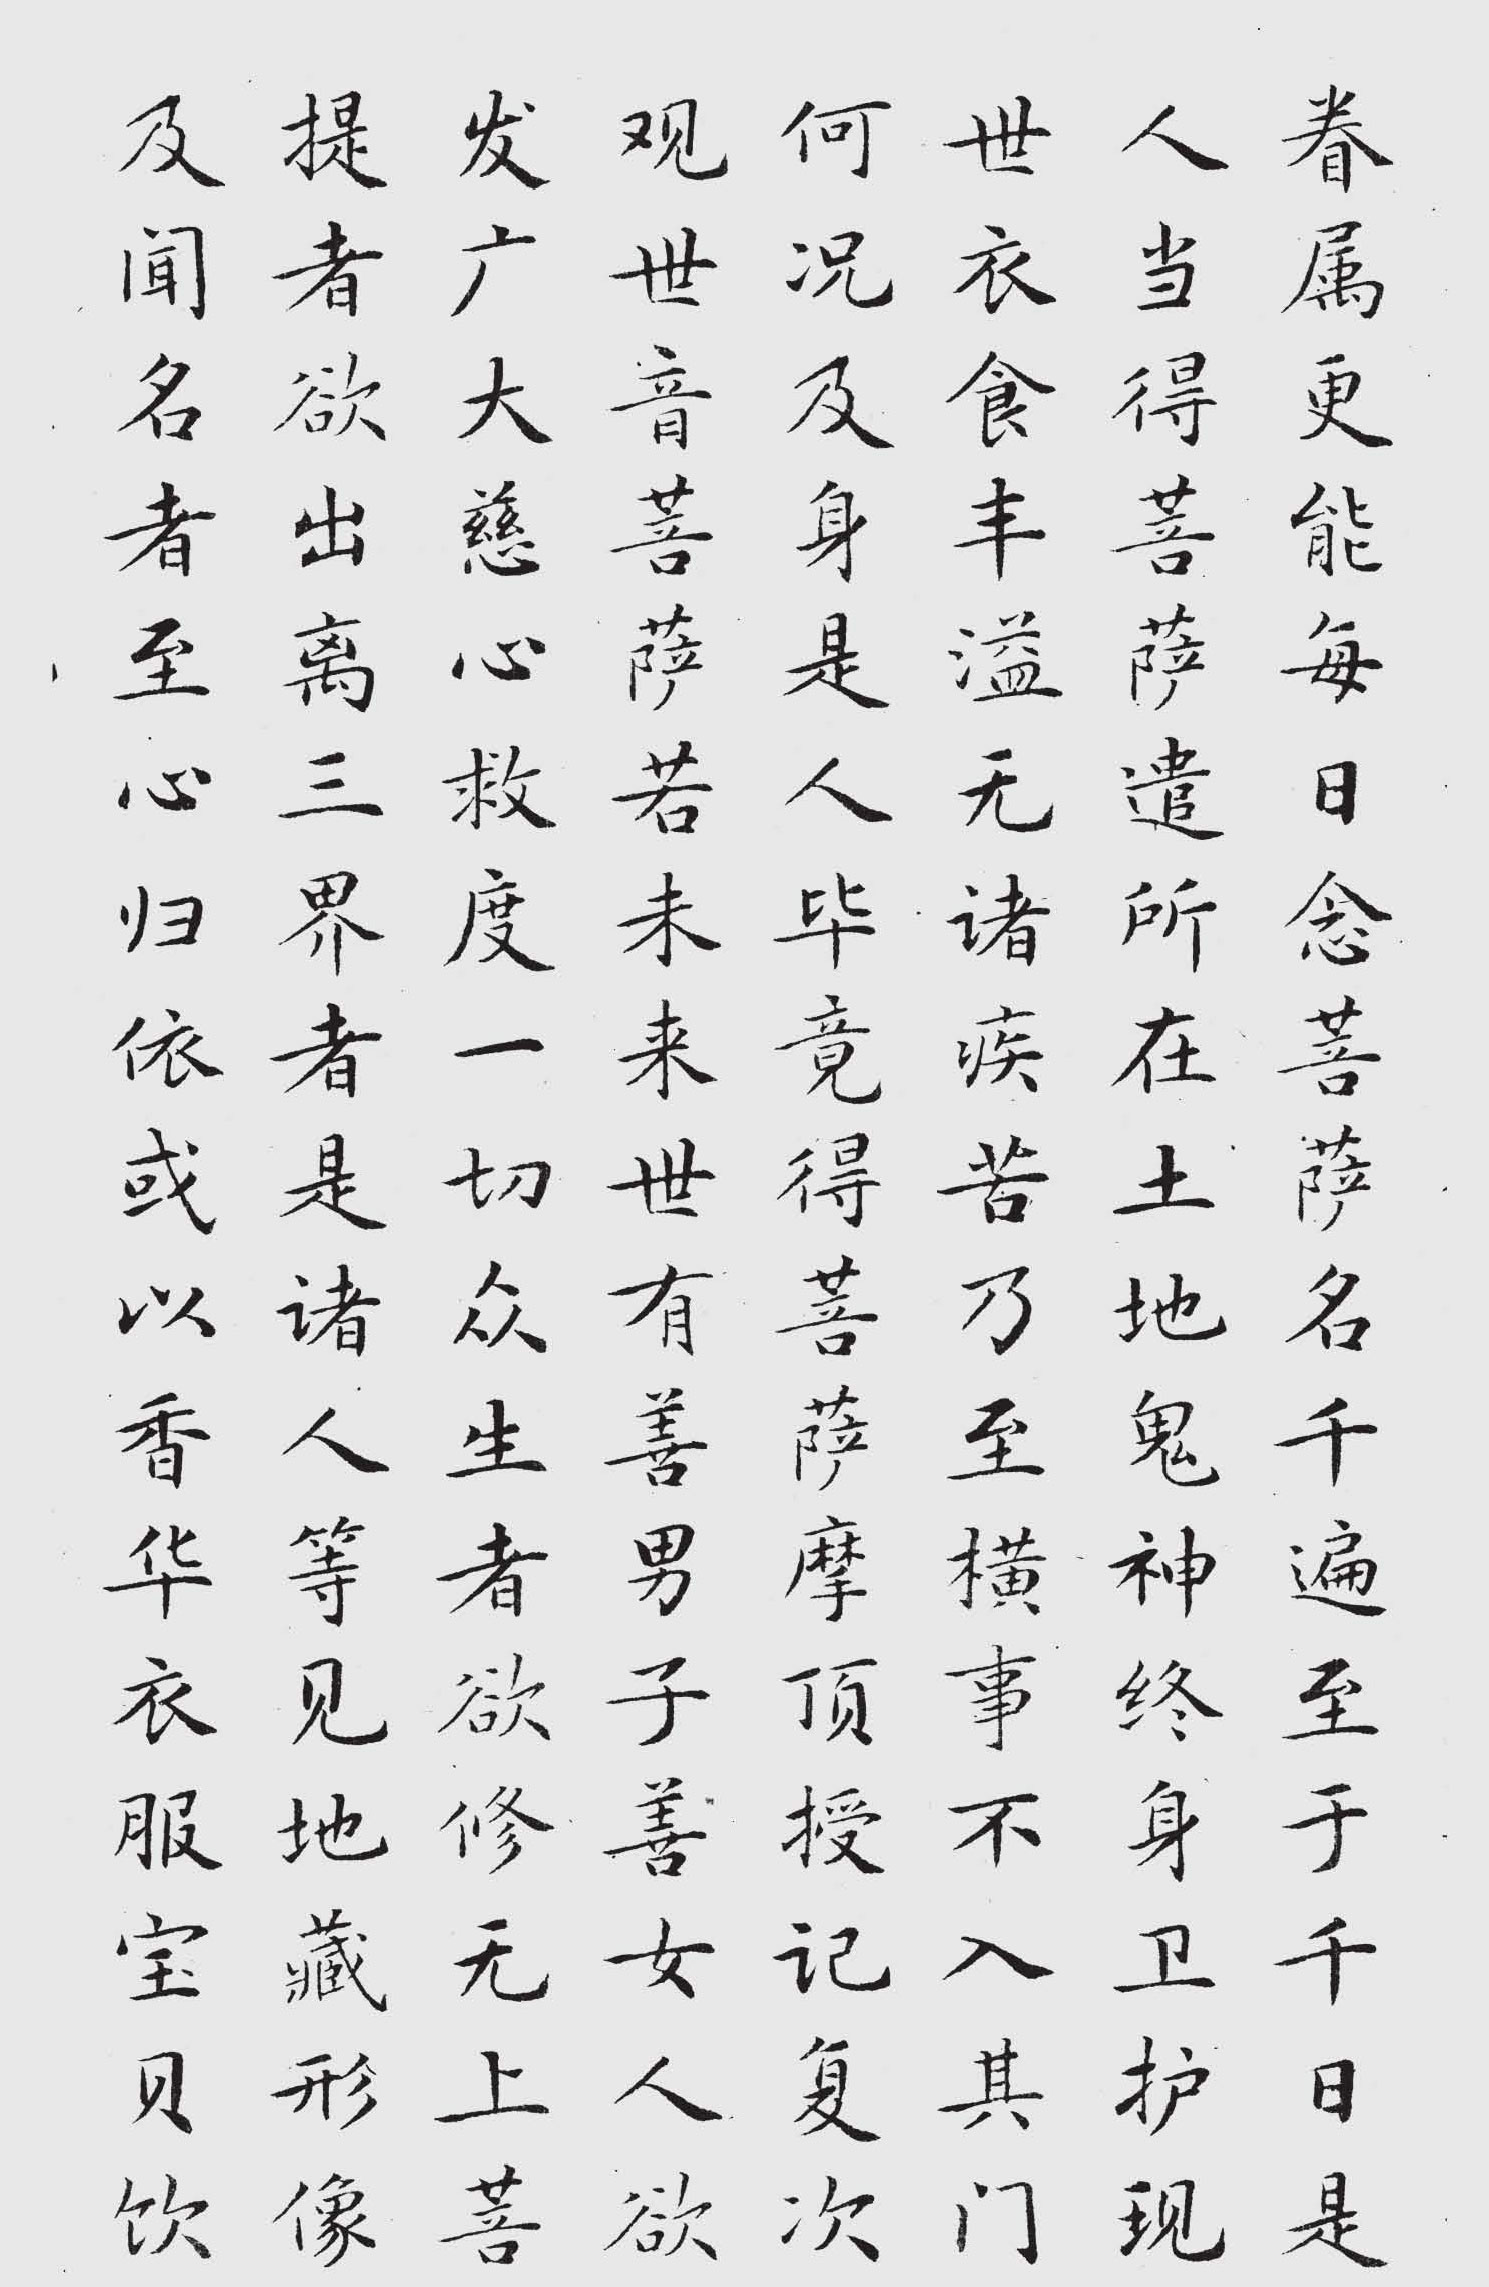 眷属更能每日念菩萨名千遍至于千日是
人当得菩萨遣所在土地鬼神终身卫护现
世衣食丰溢无诸疾苦乃至横事不入其门
何况及身是人毕竟得菩萨摩顶授记复次
观世音菩萨若未来世有善男子善女人欲
发广大慈心救度一切众生者欲修无上菩
提者欲出离三界者是诸人等见地藏形像
及闻名者至心归依或以香华衣服宝贝饮